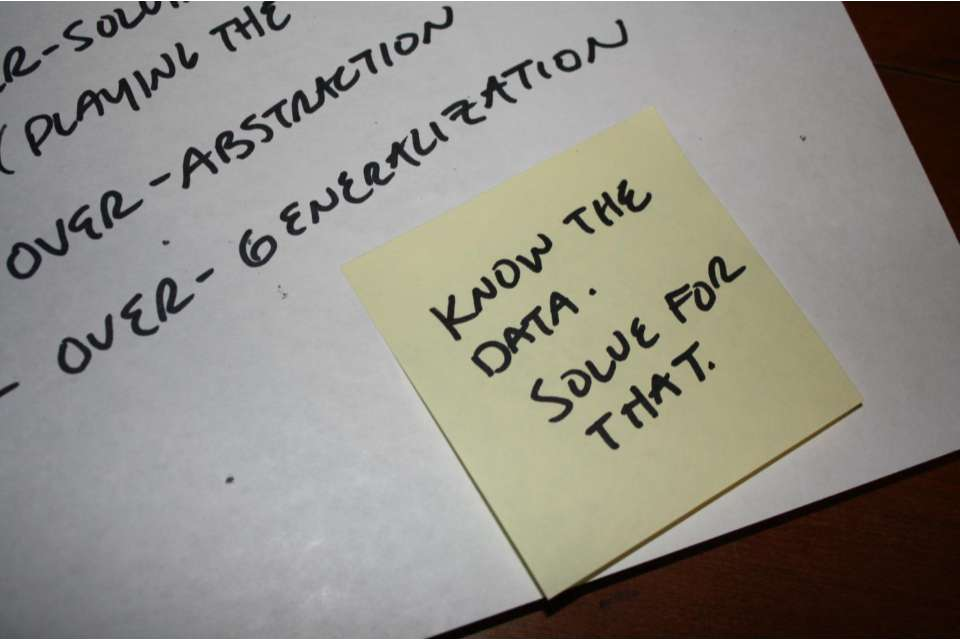 (PLAYING THE
OVER-ABSTRACTION
- OVER-GENERALIZATION
KNOW THE
DATA.
SOLVE FOR
THAT.